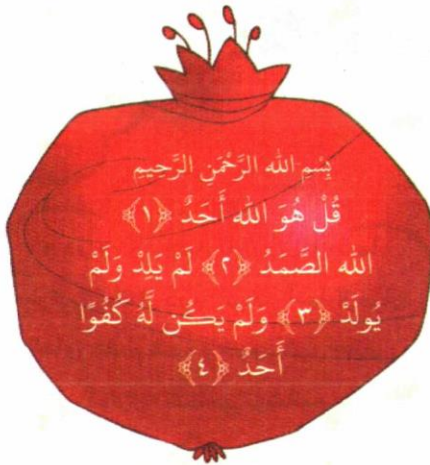 بِسْمِ الله الرَّحْمَنِ الرَّحِيم
قُلْ هُوَ الله أَحَدٌ ﴿١﴾
الله الصَّمَدُ ﴿٢﴾ لَمْ يَلِدْ وَلَمْ
يُولَدْ ﴿٣﴾ وَلَمْ يَكُن لَّهُ كُفُوًا
أَحَدٌ ﴿٤﴾